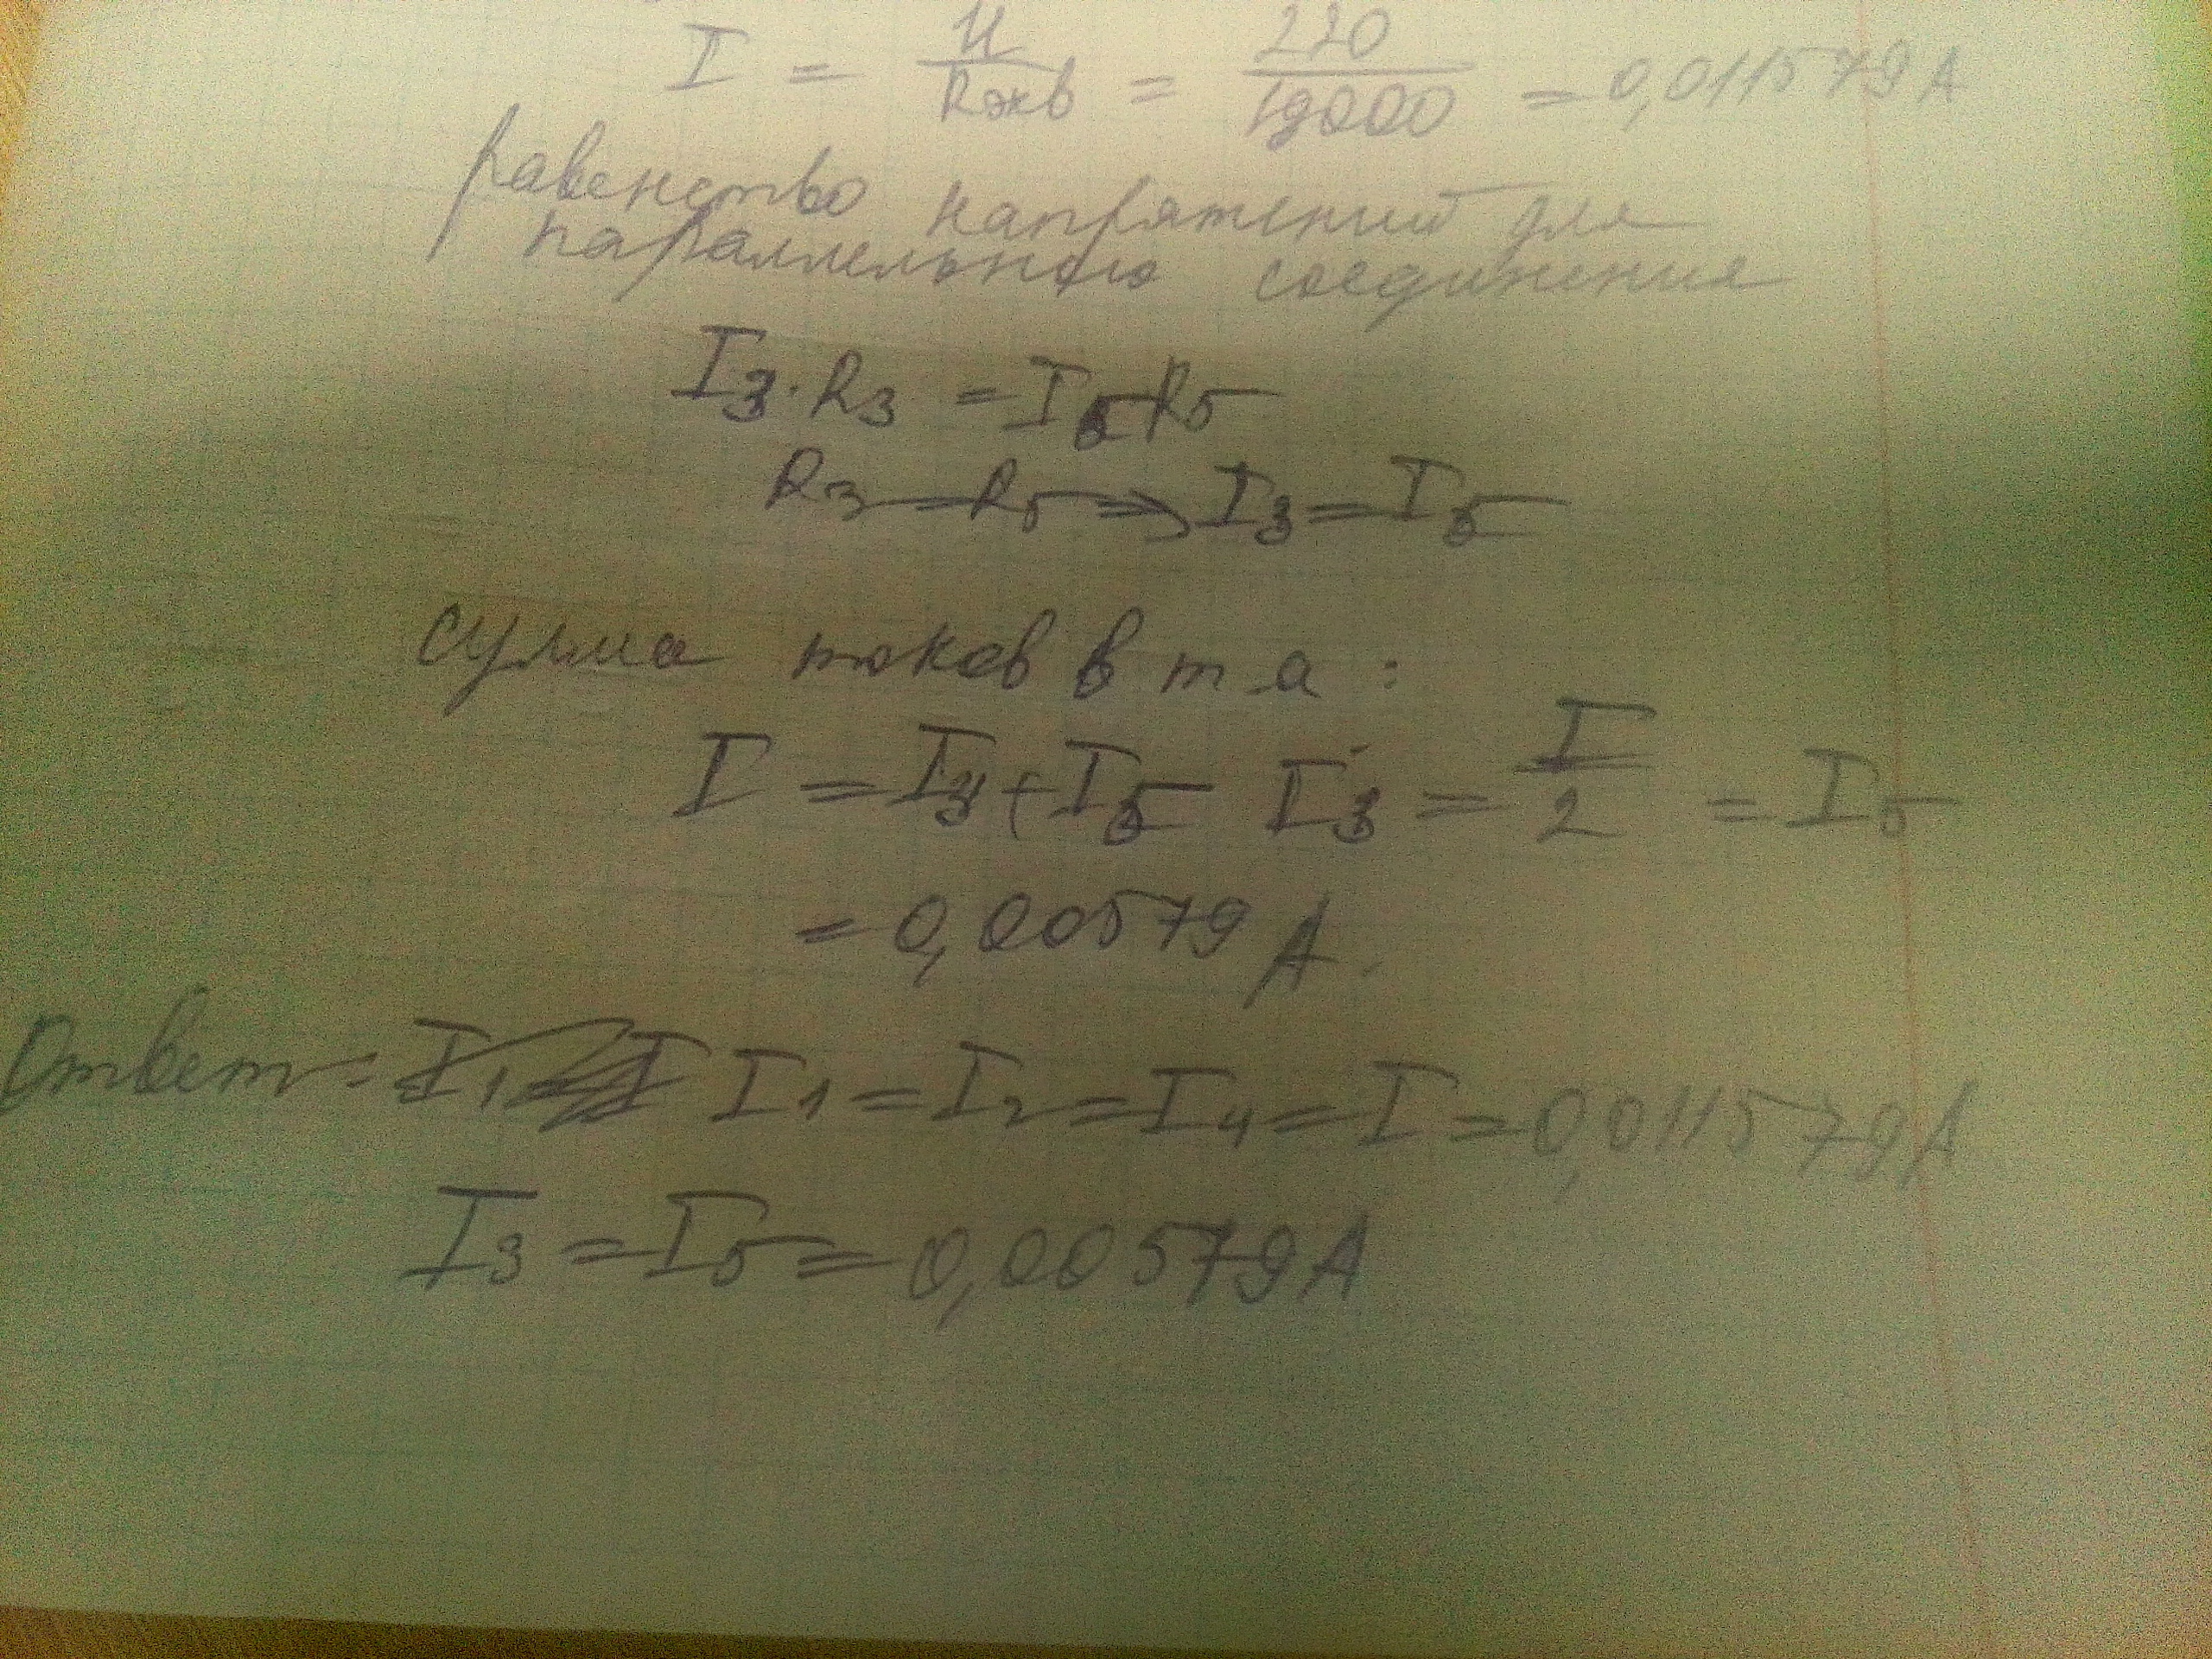 I = U/Rэкв = 220/19000 = 0,011579 A
равенство напряжений для
параллельного соединения
I3·R3 = I5R5
R3=R5 => I3=I5
сумма токов в т а :
I = I3+I5 I3 = I/2 = I5
= 0,00579 A.
Ответ: I1=I2=I4=I=0,011579A
I3=I5=0,00579A